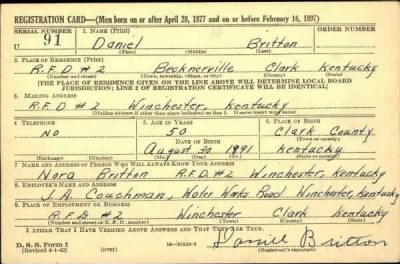 REGISTRATION CARD—(Men born on or after April 28, 1877 and on or before February 16, 1897)
SERIAL NUMBER 1. NAME (Print) ORDER NUMBER
U 91 Daniel Britton
(First) (Middle) (Last)
2. PLACE OF RESIDENCE (Print)
R.F.D #2 Becknerville Clark Kentucky
(Number and street) (Town, township, village, or city) (County) (State)
[THE PLACE OF RESIDENCE GIVEN ON THE LINE ABOVE WILL DETERMINE LOCAL BOARD
JURISDICTION; LINE 2 OF REGISTRATION CERTIFICATE WILL BE IDENTICAL]
3. MAILING ADDRESS
R.F.D #2 Winchester, Kentucky
[Mailing address if other than place indicated on line 2. If same insert word same]
4. TELEPHONE 5. AGE IN YEARS 6. PLACE OF BIRTH
NO 50 Clark County
DATE OF BIRTH (Town or county)
August 30 1891 Kentucky
(Exchange) (Number) (Mo.) (Day) (Yr.) (State or country)
7. NAME AND ADDRESS OF PERSON WHO WILL ALWAYS KNOW YOUR ADDRESS
Nora Britton R.F.D. #2 Winchester, Kentucky
8. EMPLOYER'S NAME AND ADDRESS
J. A. Couchman, Water Works Road Winchester, Kentucky
9. PLACE OF EMPLOYMENT OR BUSINESS
R.F.D #2 Winchester Clark Kentucky
(Number and street or R. F. D. number) (Town) (County) (State)
I AFFIRM THAT I HAVE VERIFIED ABOVE ANSWERS AND THAT THEY ARE TRUE.
D. S. S. Form 1 Daniel Britton
(Revised 4-1-42) (over) (Registrant's signature)